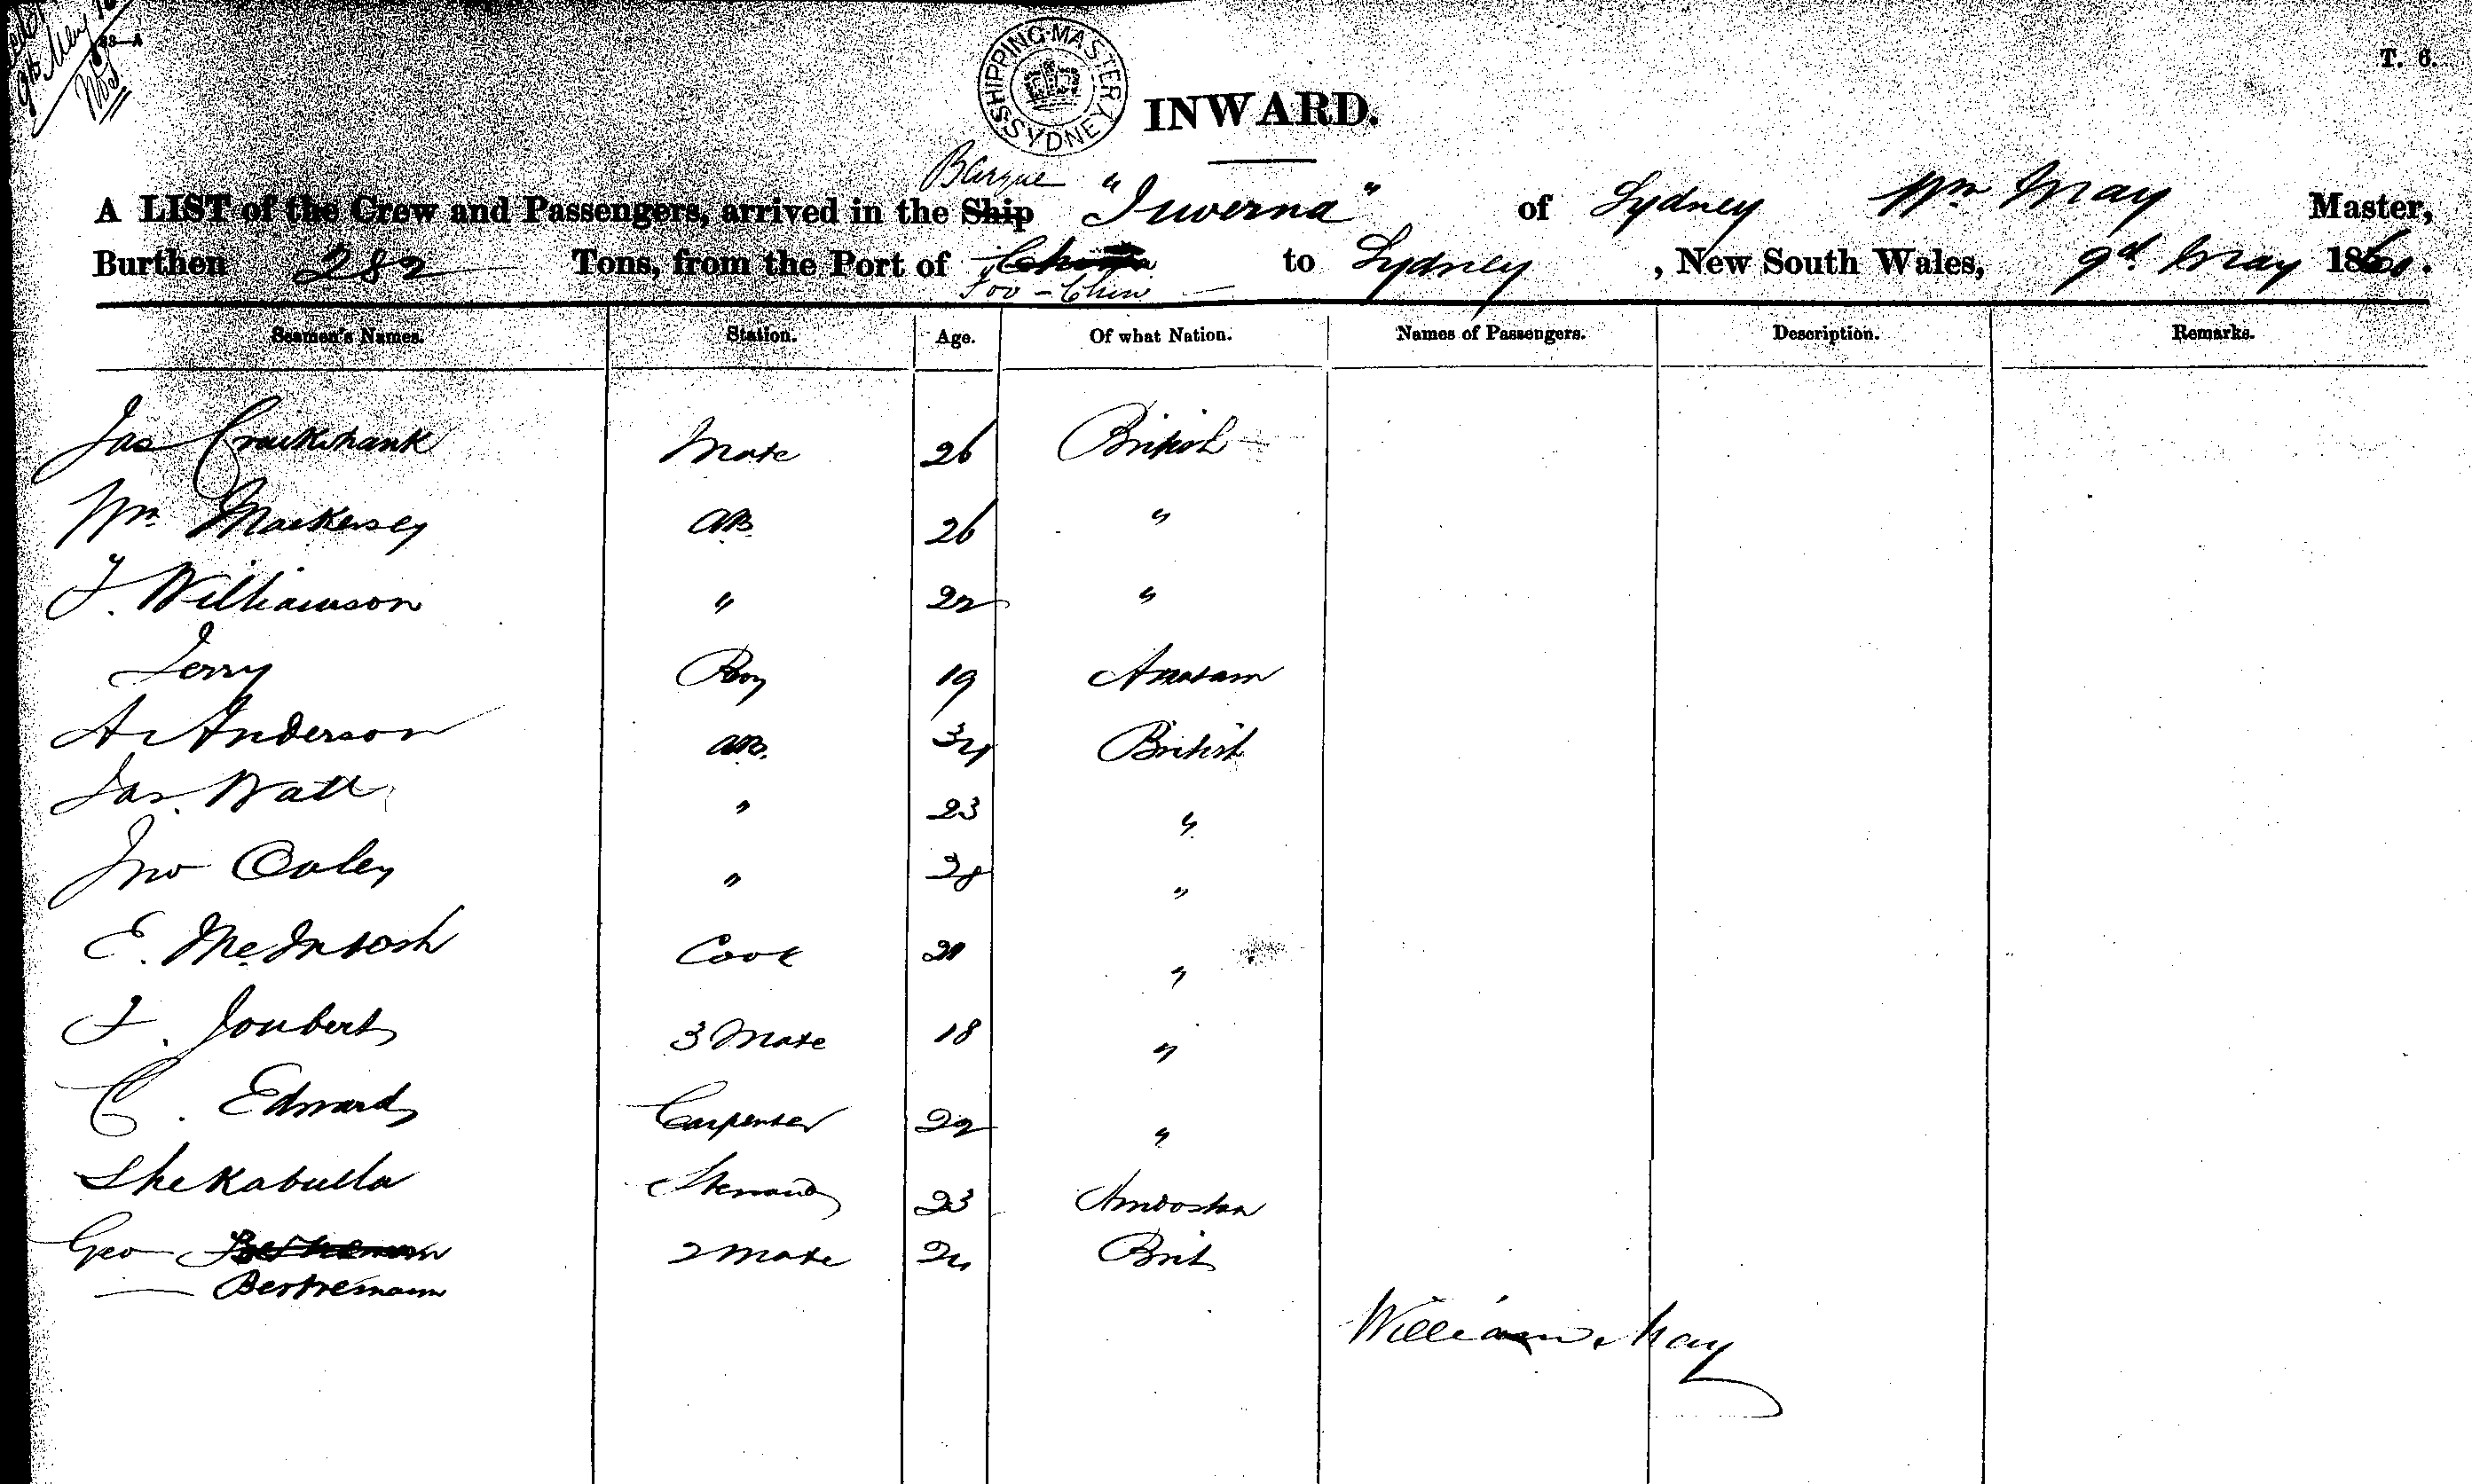 T. 6.
SHIPPING MASTER SYDNEY
INWARD.
Barque
A LIST of the Crew and Passengers, arrived in the Ship "Juverna" of Sydney Wm May Master,
Burthen 282 Tons, from the Port of China to Sydney, New South Wales, 9th May 1860.
Foo-Chow
Seamen's Names. Station. Age. Of what Nation. Names of Passengers. Description. Remarks.
Jas Crookshank Mate 26 British
Wm Mackersey AB 26 "
J. Williamson " 22 "
Jerry Boy 19
A Anderson AB. 34 British
Jas. Watt " 23 "
Jno " 28 "
E. McIntosh Cook "
F. Joubert 3 Mate 18 "
C. Edwards Carpenter 22 "
Shekabulla Steward 23
Geo 2 Mate 24 Brit
Bertremann
William May